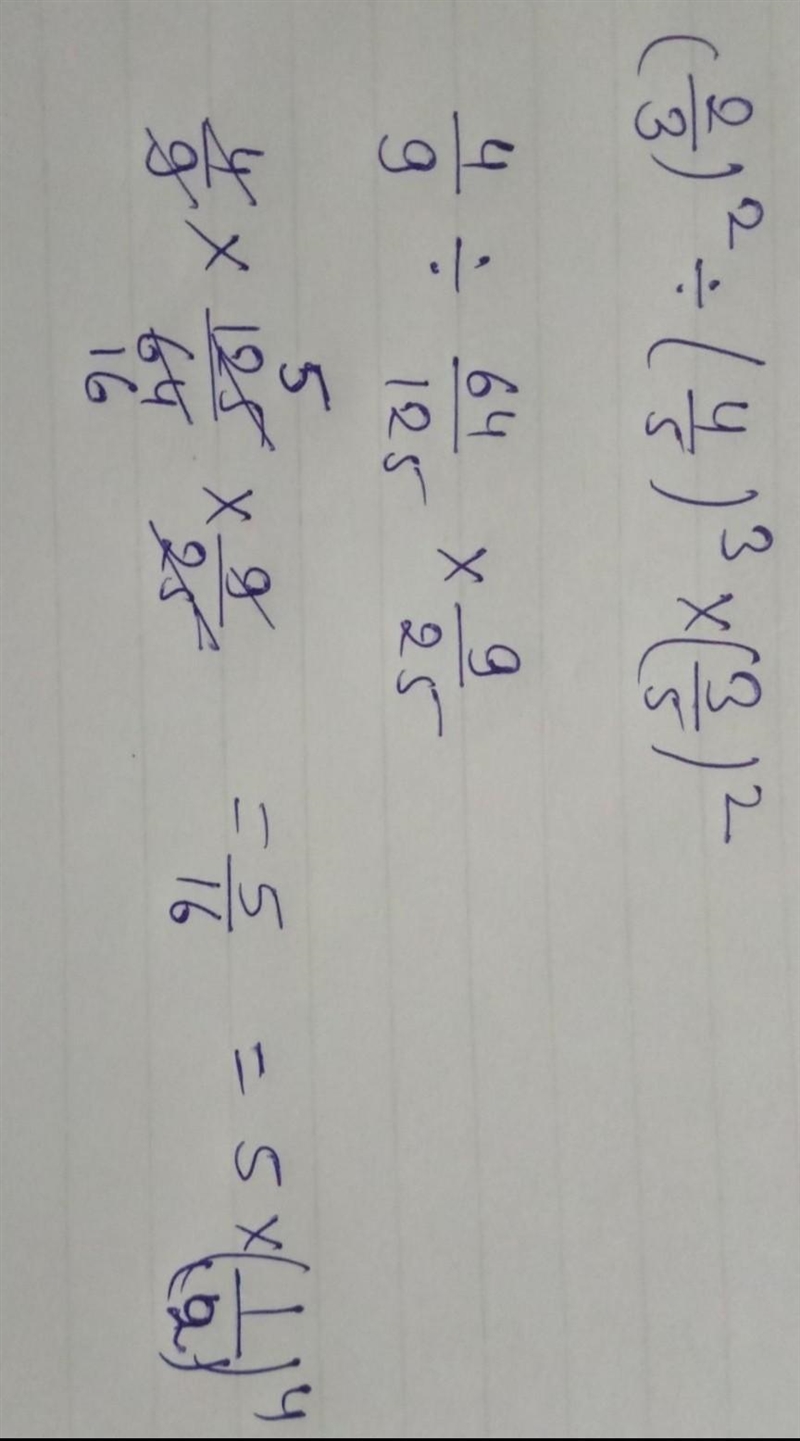 (2/3)² ÷ (4/5)³ × (3/5)²
4/9 ÷ 64/125 × 9/25
4/9 × 125/64 × 9/25 = 5/16 = 5 × (1/2)⁴
5
16